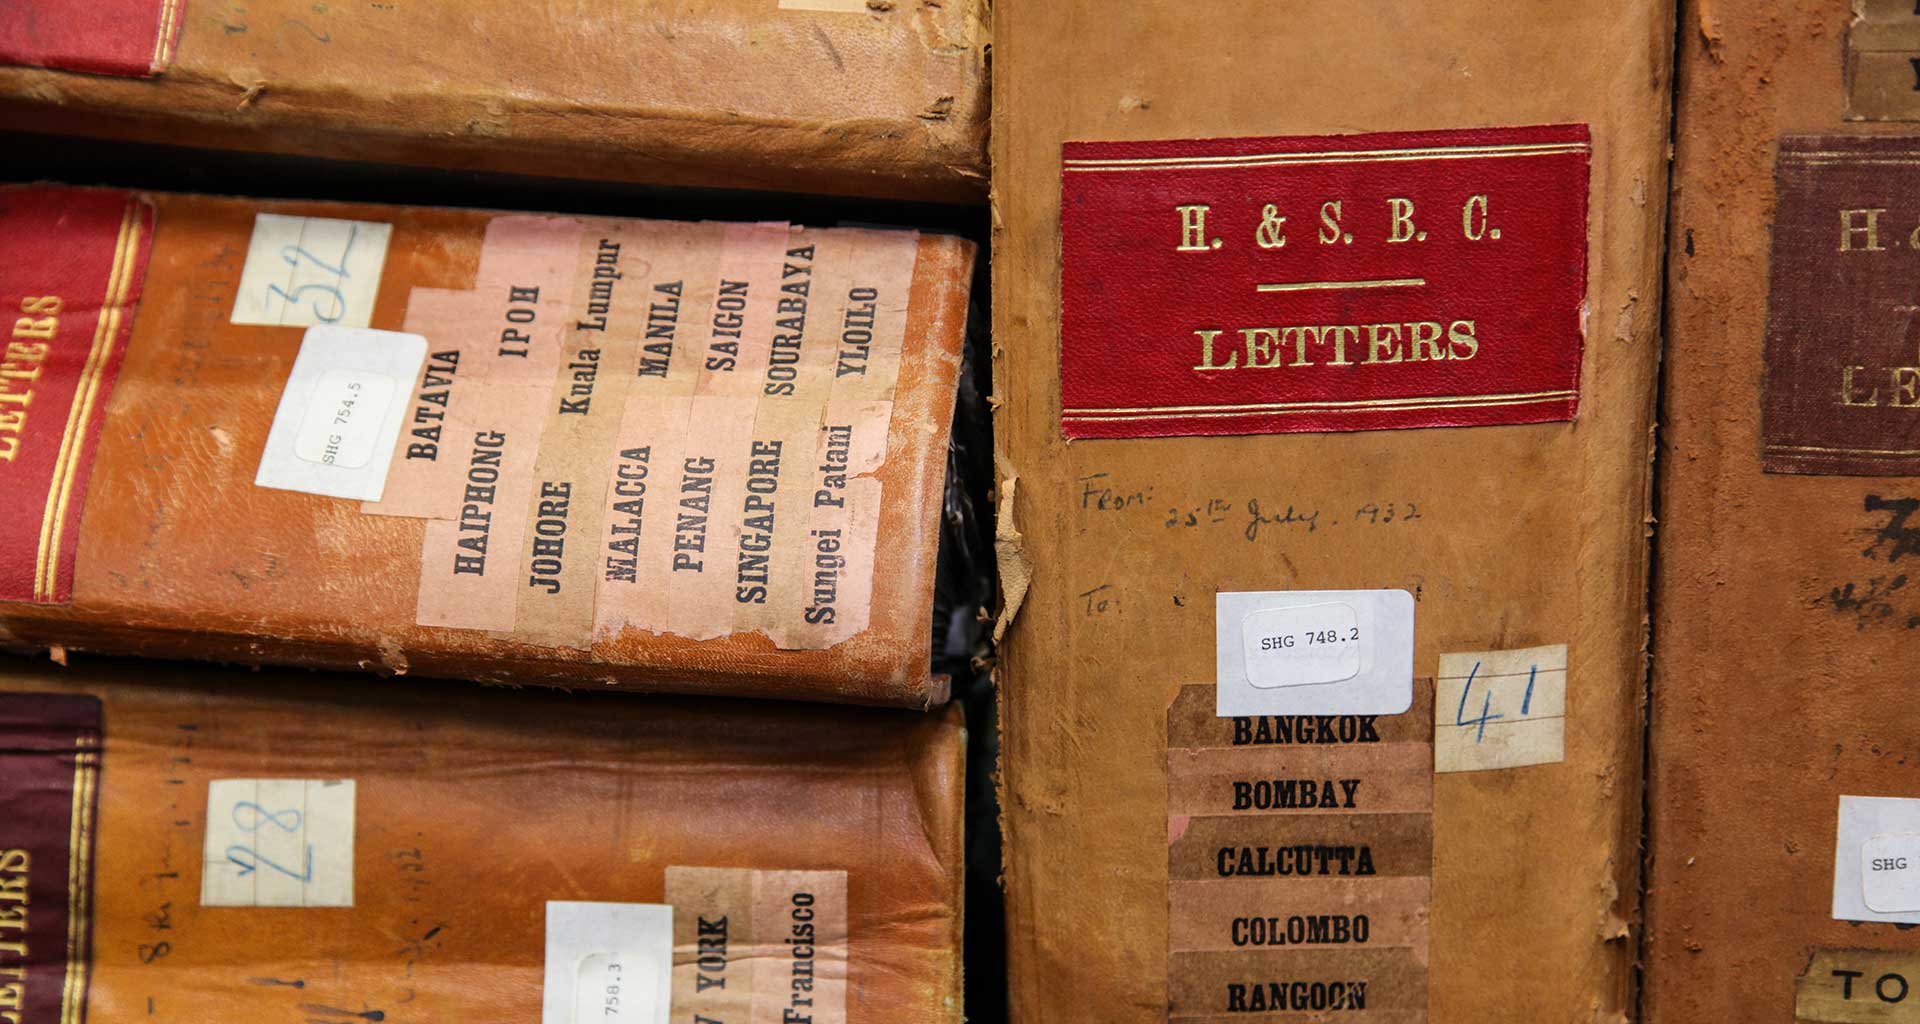 LETTERS
32
SHG 754.5
BATAVIA
HAIPHONG
IPOH
JOHORE
Kuala Lumpur
MALACCA
MANILA
PENANG
SAIGON
SINGAPORE
SOURABAYA
Sungei Patani
YLOILO
LETTERS
28
758.3
YORK
Francisco
H. & S. B. C.
LETTERS
From:
25th July. 1932
To:
SHG 748.2
41
BANGKOK
BOMBAY
CALCUTTA
COLOMBO
RANGOON
H. &
LE
SHG
TO